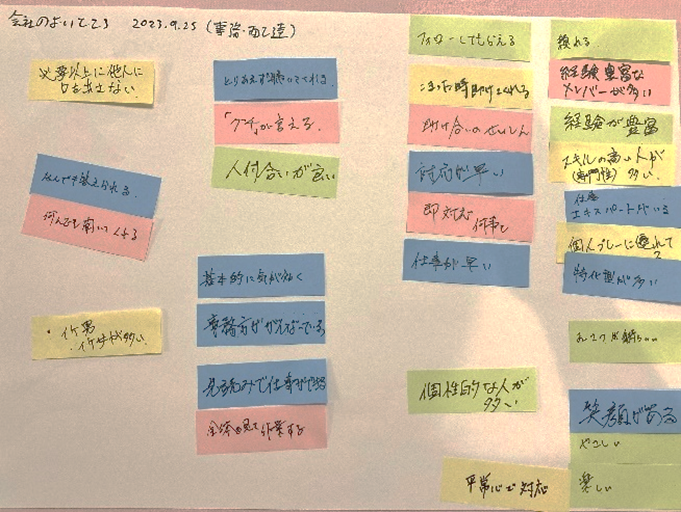 会社のよいところ 2023.9.25 (事務・配達)
必要以上に他人に
口を出さない
なんでも答えられる
何んでも聞いてくれる
・イケ男
とりあえず聴いてくれる
「グチ」が言える
人付合いが良い
基本的に気が効く
事務方ががんばっている
先読みで仕事ができる
全体を見て作業する
フォローしてもらえる
こまった時助けてくれる
助け合いのせいしん
対応が早い
即対応 何事も
仕事が早い
個性的な人が
多い
平常心で対応
頼れる
経験豊富な
メンバーが多い
経験が豊富
スキルの高い人が
(専門性) 多い
仕事
エキスパートがいる
個人プレーに優れて
る
特化型が多い
笑顔がある
やさしい
楽しい